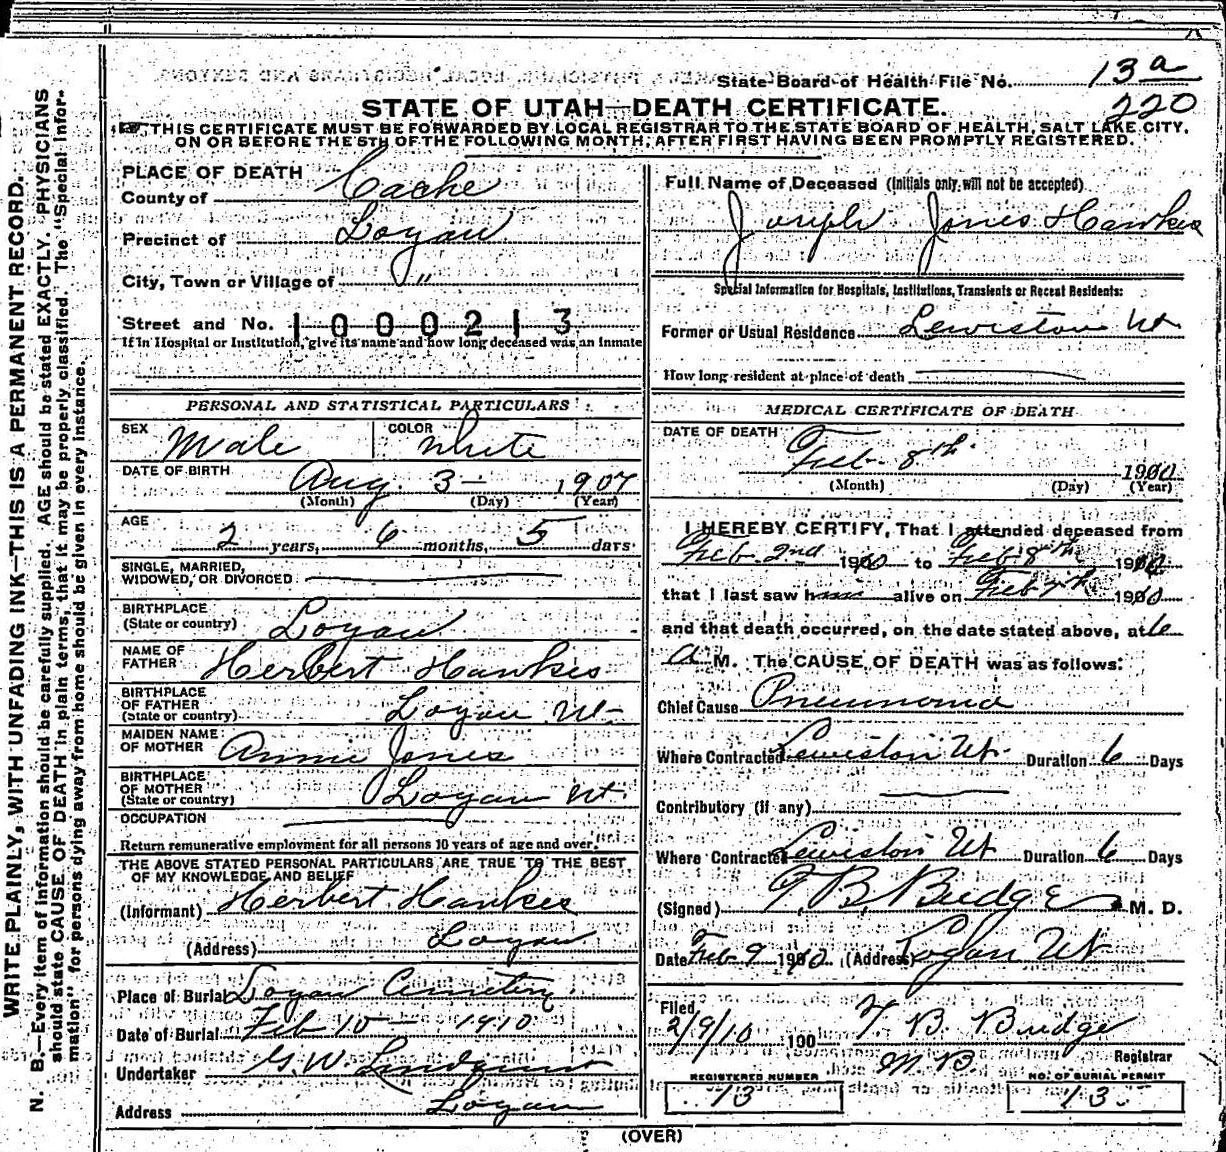 State Board of Health File No. 13a
220
STATE OF UTAH—DEATH CERTIFICATE.
THIS CERTIFICATE MUST BE FORWARDED BY LOCAL REGISTRAR TO THE STATE BOARD OF HEALTH, SALT LAKE CITY,
ON OR BEFORE THE 5TH OF THE FOLLOWING MONTH, AFTER FIRST HAVING BEEN PROMPTLY REGISTERED.
WRITE PLAINLY, WITH UNFADING INK—THIS IS A PERMANENT RECORD.
N. B.—Every item of information should be carefully supplied. AGE should be stated EXACTLY. PHYSICIANS
should state CAUSE OF DEATH in plain terms, that it may be properly classified. The "Special Infor-
mation" for persons dying away from home should be given in every instance.
PLACE OF DEATH
County of Cache
Precinct of Logan
City, Town or Village of "
Street and No. 1000213
If in Hospital or Institution, give its name and how long deceased was an inmate
PERSONAL AND STATISTICAL PARTICULARS
SEX Male COLOR White
DATE OF BIRTH Aug. 3 — 1907
(Month) (Day) (Year)
AGE
2 years, 6 months, 5 days
SINGLE, MARRIED,
WIDOWED, OR DIVORCED
BIRTHPLACE
(State or country) Logan
NAME OF
FATHER Herbert Hawkes
BIRTHPLACE
OF FATHER
(State or country) Logan Ut
MAIDEN NAME
OF MOTHER Annie Jones
BIRTHPLACE
OF MOTHER
(State or country) Logan Ut.
OCCUPATION
Return remunerative employment for all persons 10 years of age and over.
THE ABOVE STATED PERSONAL PARTICULARS ARE TRUE TO THE BEST
OF MY KNOWLEDGE AND BELIEF
(Informant) Herbert Hawkes
(Address) Logan
Place of Burial Logan Cemetery
Date of Burial Feb 10 — 1910
Undertaker G. W. Lindquist
Address Logan
Full Name of Deceased (Initials only will not be accepted)
Joseph Jones Hawkes
Special Information for Hospitals, Institutions, Transients or Recent Residents:
Former or Usual Residence Lewiston Ut.
How long resident at place of death
MEDICAL CERTIFICATE OF DEATH
DATE OF DEATH
Feb. 8th 1910
(Month) (Day) (Year)
I HEREBY CERTIFY, That I attended deceased from
Feb. 2nd 1910 to Feb 8th 1910
that I last saw him alive on Feb 7th 1910
and that death occurred, on the date stated above, at 6
a M. The CAUSE OF DEATH was as follows:
Chief Cause Pneumonia
Where Contracted Lewiston Ut. Duration 6 Days
Contributory (if any)
Where Contracted Lewiston Ut Duration 6 Days
(Signed) T. B. Budge M. D.
Date Feb 9 1910. (Address) Logan Ut
Filed
2/9/10 190 T. B. Budge
M. D. Registrar
REGISTERED NUMBER NO. OF BURIAL PERMIT
13 13
(OVER)